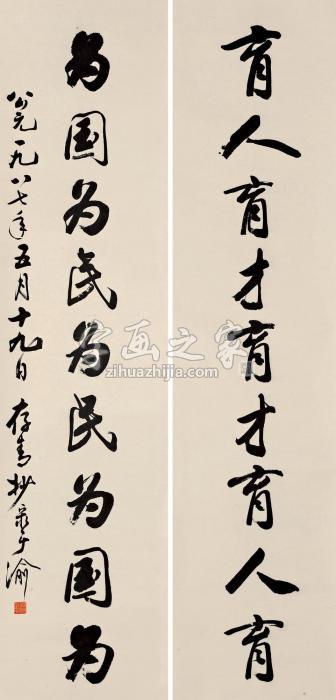 育人育才育才育人育
为国为民为民为国为
公元一九八七年五月十九日 抄 于渝
字画之家
zihuazhijia.com